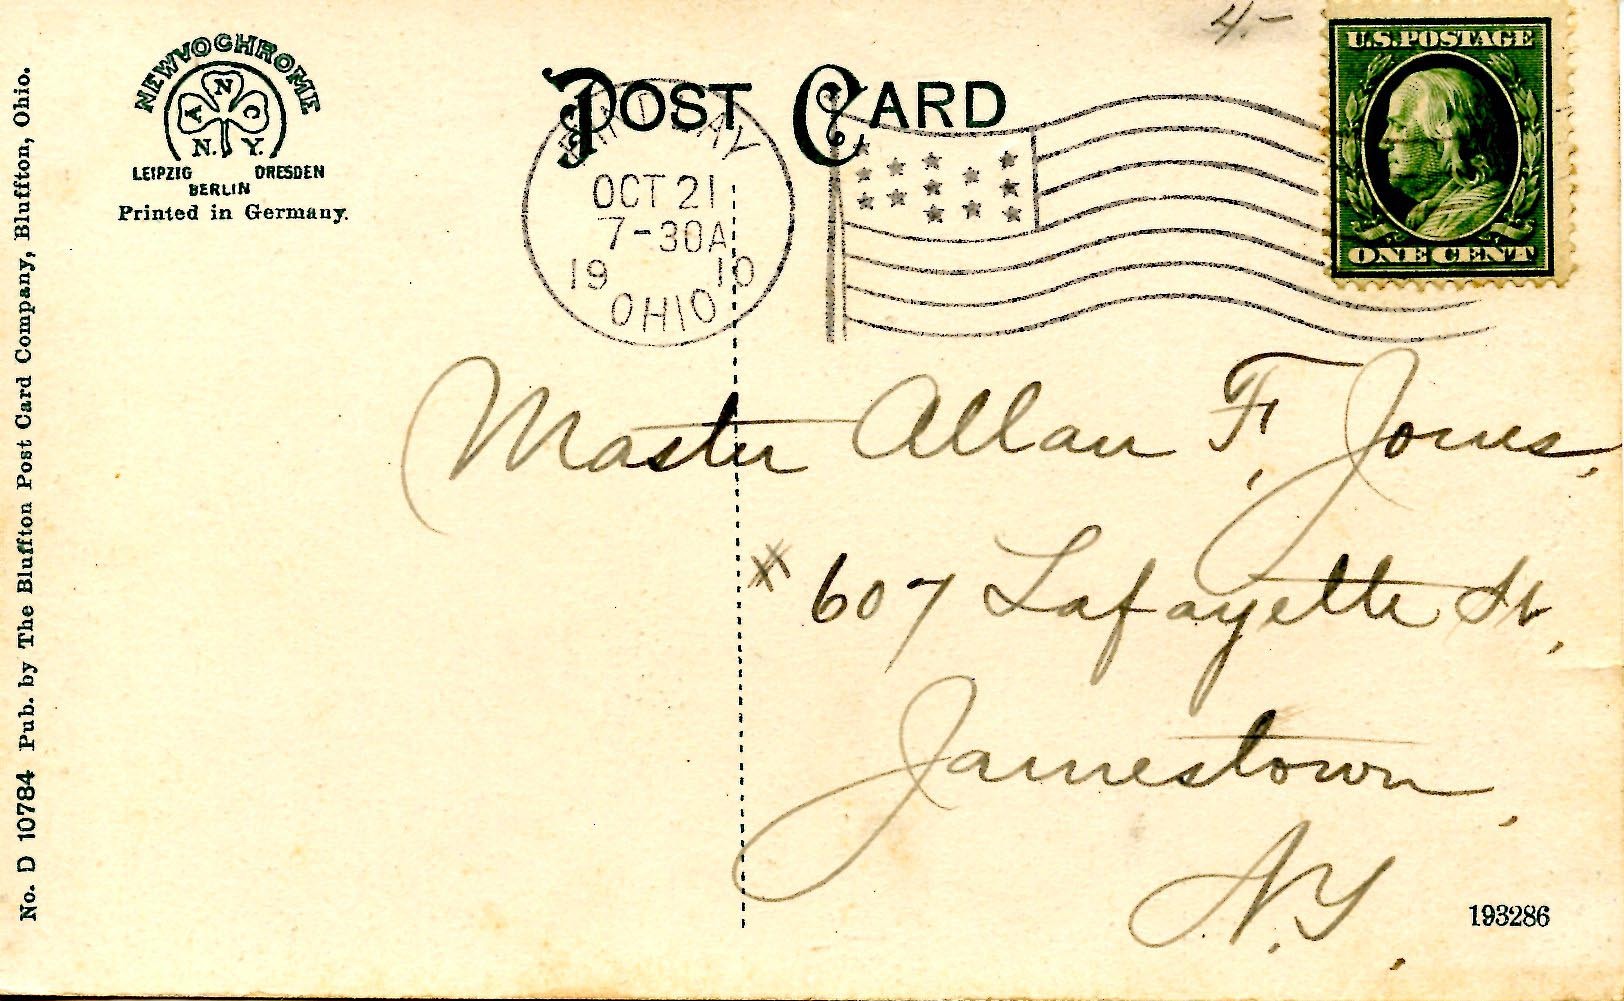 4.-
NEWVOCHROME
A N C
N. Y.
LEIPZIG DRESDEN
BERLIN
Printed in Germany.
POST CARD
OCT 21
7-30A
19 10
OHIO
U.S. POSTAGE
ONE CENT
Master Allan F. Jones,
# 607 Lafayette St,
Jamestown,
N.Y.
193286
No. D 10784 Pub. by The Bluffton Post Card Company, Bluffton, Ohio.